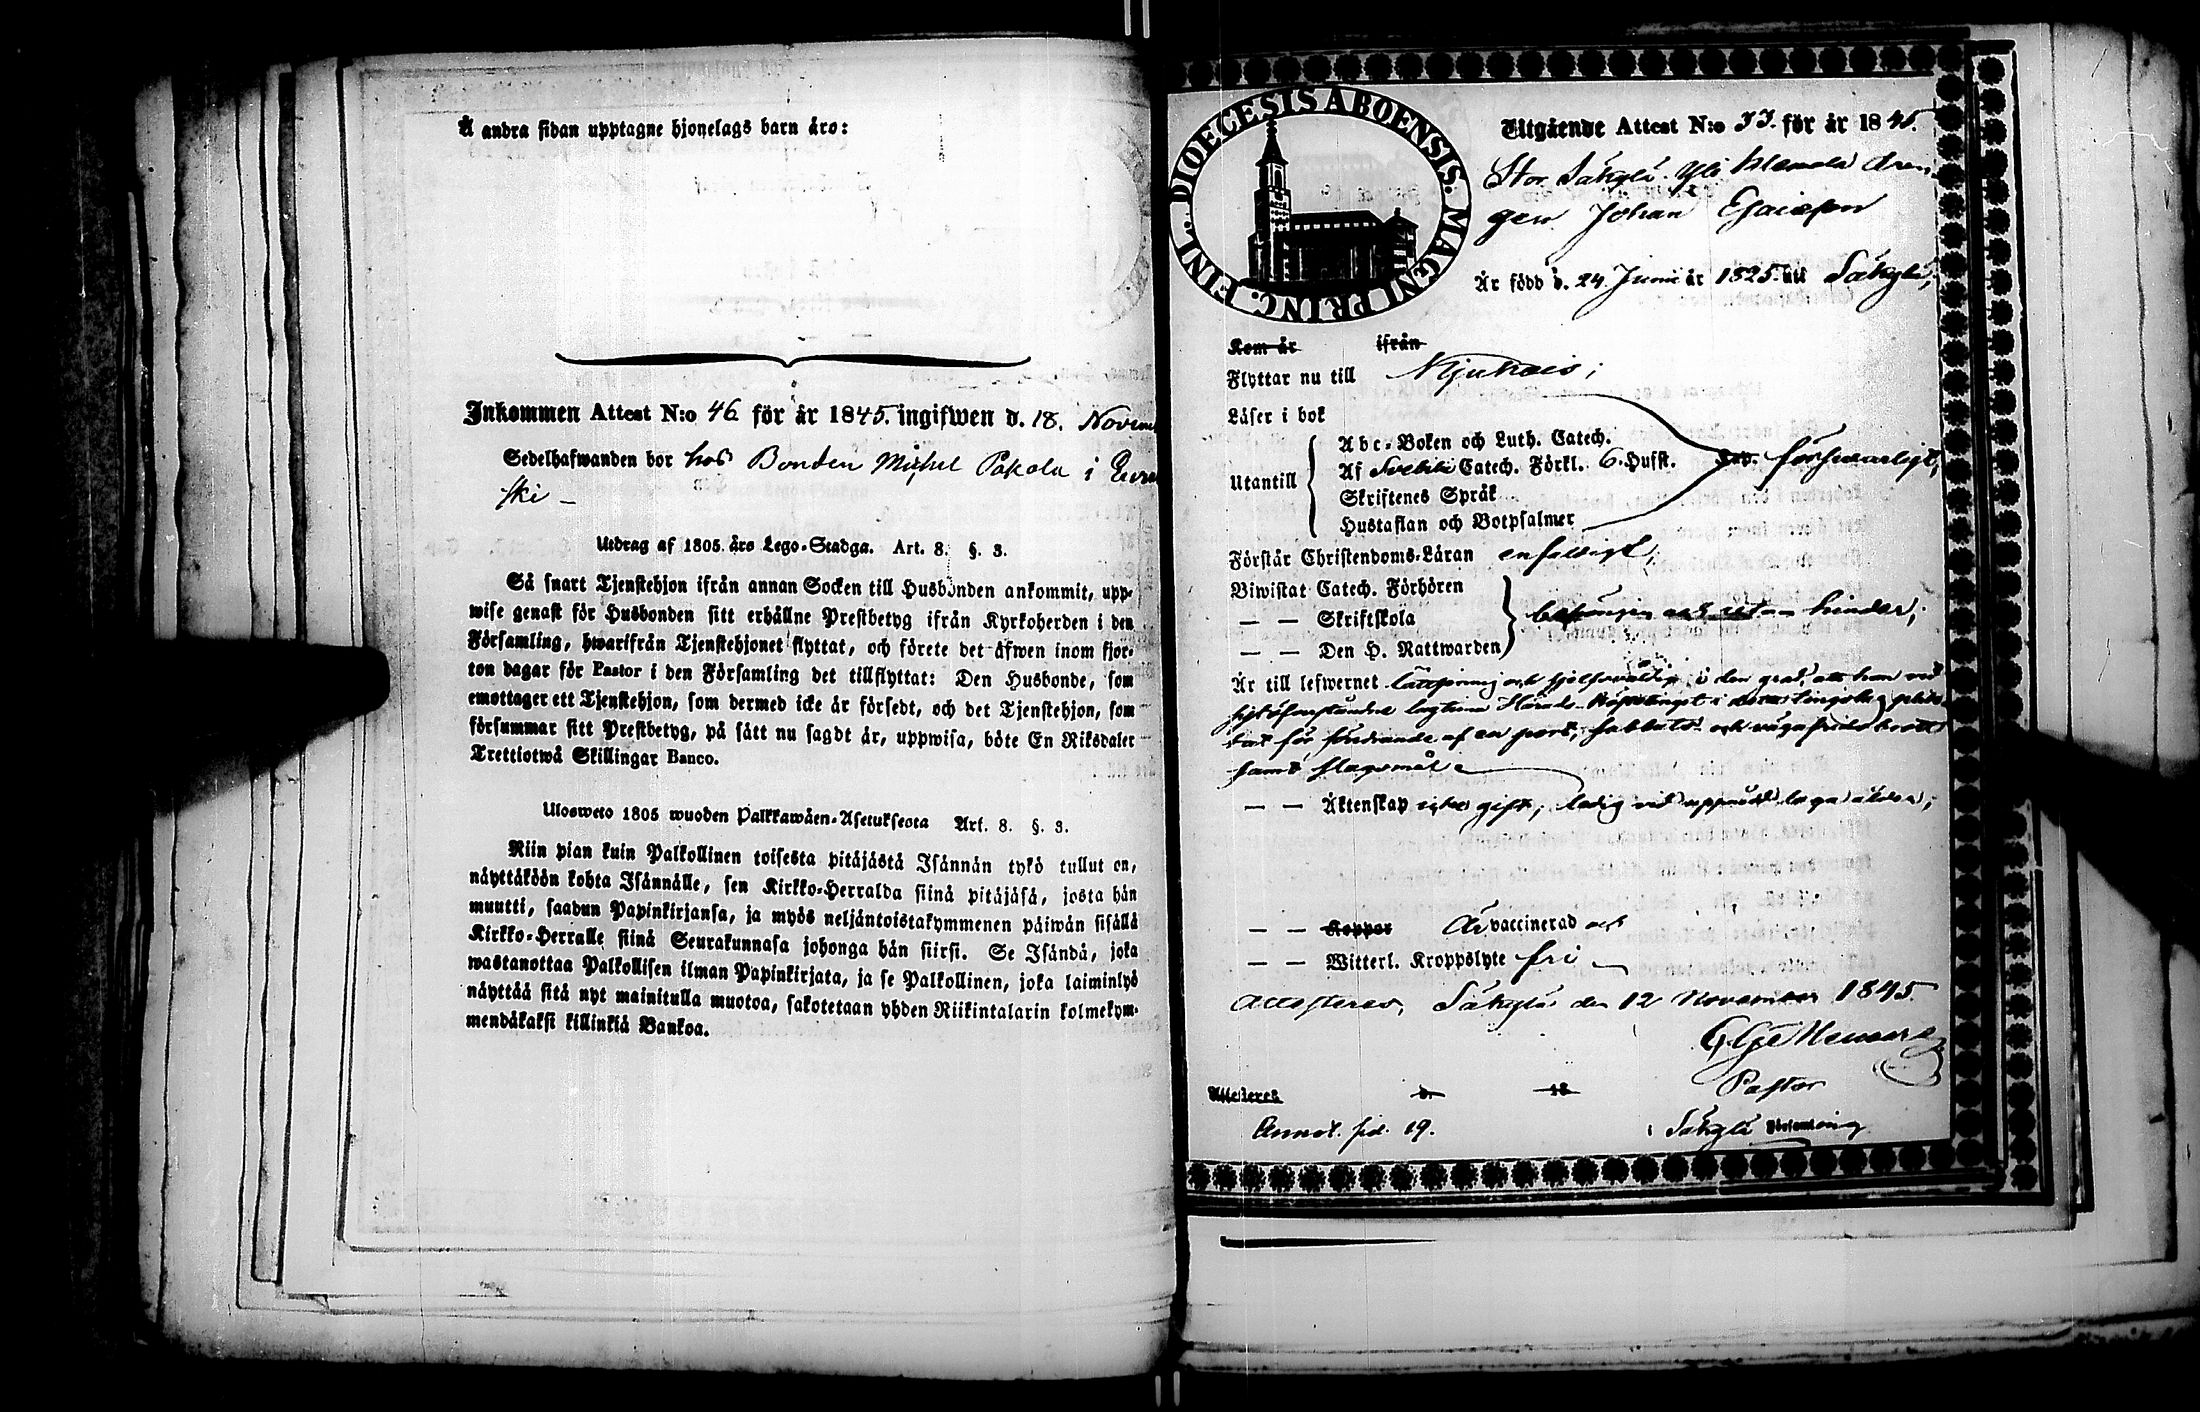 Å andra sidan upptagne hjonelags barn äro:
Inkommen Attest N:o 46 för år 1845. ingifwen d. 18. Novem
Sedelhafwanden bor hos Bonden Michel Pakola i Eura
ski –
Utdrag af 1805. års Lego-Stadga. Art. 8. §. 3.
Så snart Tjenstehjon ifrån annan Socken till Husbonden ankommit, upp-
wise genast för Husbonden sitt erhållne Prestbetyg ifrån Kyrkoherden i den
Församling, hwarifrån Tjenstehjonet flyttat, och förete det äfwen inom fjor-
ton dagar för Pastor i den Församling det tillflyttat: Den Husbonde, som
emottager ett Tjenstehjon, som dermed icke är försedt, och det Tjenstehjon, som
försummar sitt Prestbetyg, på sätt nu sagdt är, uppwisa, böte En Riksdaler
Trettiotwå Skillingar Banco.
Ulosweto 1805 wuoden Palkkawäen-Asetuksesta Art. 8. §. 3.
Niin pian kuin Palkollinen toisesta pitäjästä Isännän tykö tullut on,
näyttäköön kohta Isännälle, sen Kirkko-Herralda siinä pitäjäsä, josta hän
muutti, saadun Papinkirjansa, ja myös neljäntoistakymmenen päiwän sisällä
Kirkko-Herralle siinä Seurakunnasa johonga hän siirsi. Se Isändä, joka
wastanottaa Palkollisen ilman Papinkirjata, ja se Palkollinen, joka laiminlyö
näyttää sitä nyt mainitulla muotoa, sakotetaan yhden Riikintalarin kolmekym-
mendäkaksi killinkiä Bankoa.
DIOECESIS ABOENSIS. MAGNI PRINC. FINL.
Utgående Attest N:o 33. för år 1845.
Stor Säkylä Yli Mamala dren-
gen Johan Esaiasson
Är född d. 24. Junii år 1825. uti Säkylä;
Kom år ifrån
Flyttar nu till Kjukais;
Läser i bok
Utantill
Abc-Boken och Luth. Catech.
Af Svebilii Catech. Förkl. 6. Hufst. försvarligt;
Skriftenes Språk
Hustaflan och Botpsalmer
Förstår Christendoms-Läran enfaldigt;
Biwistat Catech. Förhören
— — Skriftskola
— — Den H. Nattwarden
och utan hinder;
Är till lefwernet lättsinnig och sjelfsvåldig i den grad, att han vid
Härads
för af en port, sabbats- och
samt slagsmål
— — Äktenskap icke gift, ledig vid uppnådd laga ålder;
— — Koppor Är vaccinerad och
— — Witterl. Kroppslyte fri
Attesteras, Säkylä den 12 November 1845.
Pastor
Attesteres d. 18
Annot. sid. 19.
i Säkylä Församling